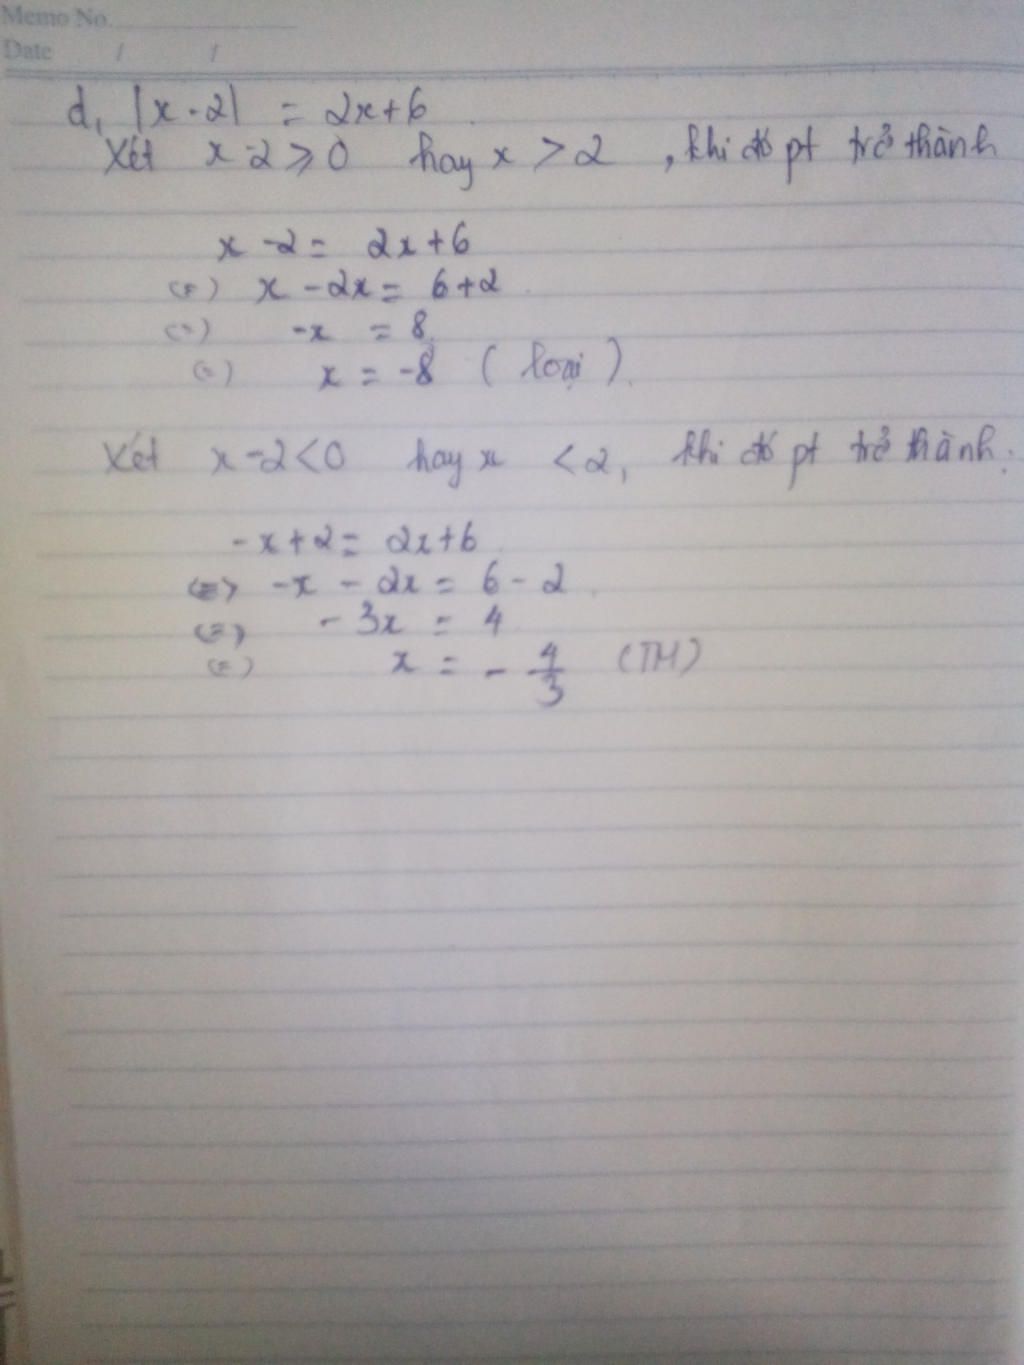 Memo No.
Date / /
d, |x-2| = 2x+6
Xét x-2 ⩾ 0 hay x > 2, khi đó pt trở thành
x - 2 = 2x+6
(=) x - 2x = 6+2
(=) -x = 8
(=) x = -8 (loại).
Xét x-2<0 hay x < 2, khi đó pt trở thành:
-x+2 = 2x+6
(=) -x - 2x = 6 - 2
(=) - 3x = 4
(=) x = - 4/3 (TM)